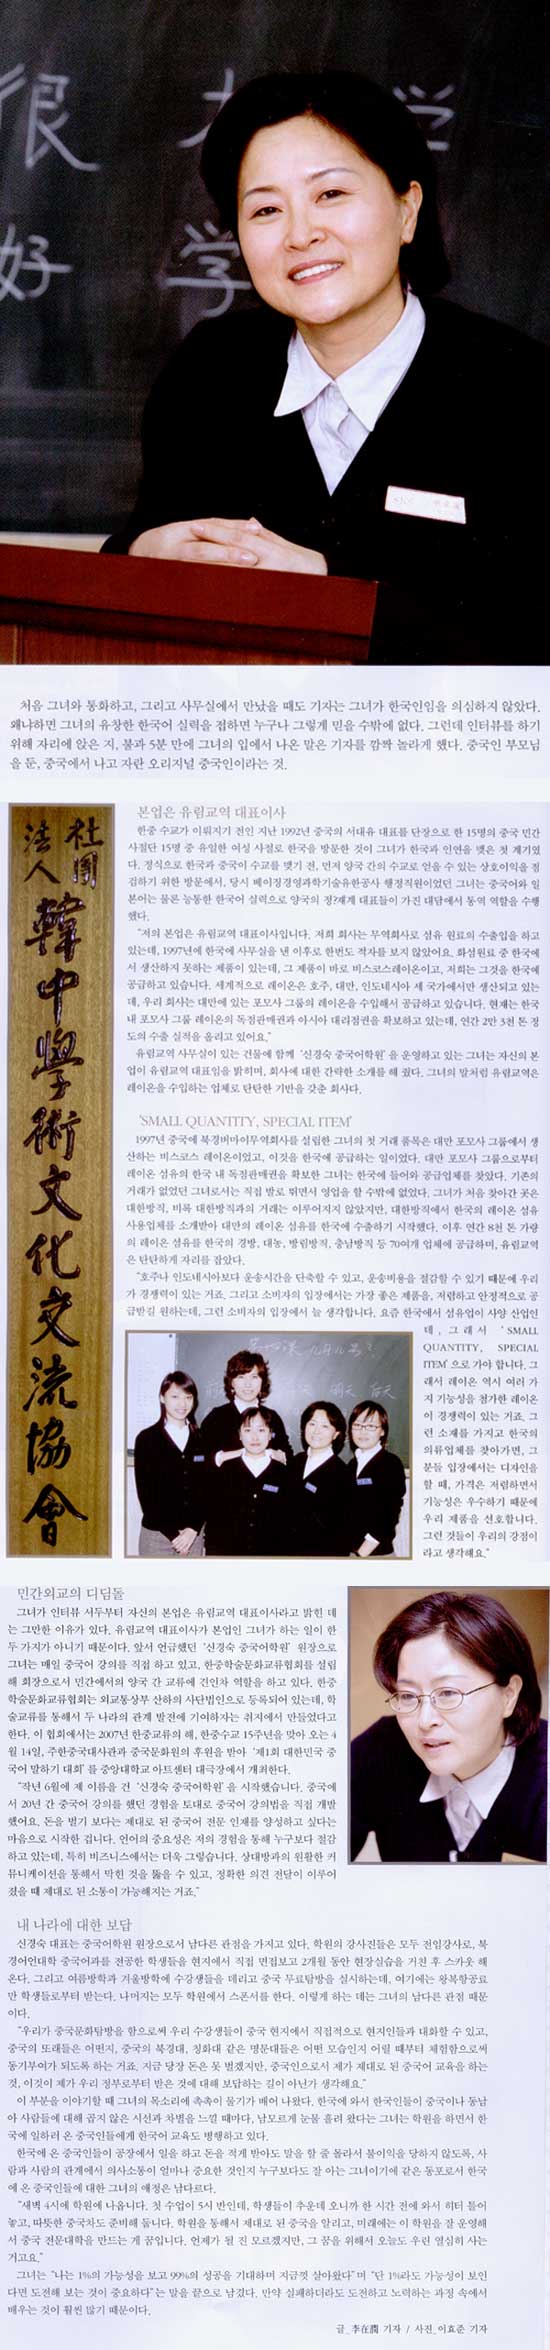 很 大 学
好 学
처음 그녀와 통화하고, 그리고 사무실에서 만났을 때도 기자는 그녀가 한국인임을 의심하지 않았다.
왜냐하면 그녀의 유창한 한국어 실력을 접하면 누구나 그렇게 믿을 수밖에 없다. 그런데 인터뷰를 하기
위해 자리에 앉은 지, 불과 5분 만에 그녀의 입에서 나온 말은 기자를 깜짝 놀라게 했다. 중국인 부모님
을 둔, 중국에서 나고 자란 오리지널 중국인이라는 것.
社團
法人
韓中學術文化交流協會
본업은 유림교역 대표이사
한중 수교가 이뤄지기 전인 지난 1992년 중국의 서대유 대표를 단장으로 한 15명의 중국 민간
사절단 15명 중 유일한 여성 사절로 한국을 방문한 것이 그녀가 한국과 인연을 맺은 첫 계기였
다. 정식으로 한국과 중국이 수교를 맺기 전, 먼저 양국 간의 수교로 얻을 수 있는 상호이익을 점
검하기 위한 방문에서, 당시 베이징경영과학기술유한공사 행정직원이었던 그녀는 중국어와 일
본어는 물론 능통한 한국어 실력으로 양국의 정?재계 대표들이 가진 대담에서 통역 역할을 수행
했다.
"저의 본업은 유림교역 대표이사입니다. 저희 회사는 무역회사로 섬유 원료의 수출입을 하고
있는데, 1997년에 한국에 사무실을 낸 이후로 한번도 적자를 보지 않았어요. 화섬원료 중 한국에
서 생산하지 못하는 제품이 있는데, 그 제품이 바로 비스코스레이온이고, 저희는 그것을 한국에
공급하고 있습니다. 세계적으로 레이온은 호주, 대만, 인도네시아 세 국가에서만 생산되고 있는
데, 우리 회사는 대만에 있는 포모사 그룹의 레이온을 수입해서 공급하고 있습니다. 현재는 한국
내 포모사 그룹 레이온의 독점판매권과 아시아 대리점권을 확보하고 있는데, 연간 2만 3천 톤 정
도의 수출 실적을 올리고 있어요."
유림교역 사무실이 있는 건물에 함께 '신경숙 중국어학원'을 운영하고 있는 그녀는 자신의 본
업이 유림교역 대표임을 밝히며, 회사에 대한 간략한 소개를 해 줬다. 그녀의 말처럼 유림교역은
레이온을 수입하는 업체로 탄탄한 기반을 갖춘 회사다.
'SMALL QUANTITY, SPECIAL ITEM'
1997년 중국에 북경버마이무역회사를 설립한 그녀의 첫 거래 품목은 대만 포모사 그룹에서 생
산하는 비스코스 레이온이었고, 이것을 한국에 공급하는 일이었다. 대만 포모사 그룹으로부터
레이온 섬유의 한국 내 독점판매권을 확보한 그녀는 한국에 들어와 공급업체를 찾았다. 기존의
거래가 없었던 그녀로서는 직접 발로 뛰면서 영업을 할 수밖에 없었다. 그녀가 처음 찾아간 곳은
대한방직, 비록 대한방직과의 거래는 이루어지지 않았지만, 대한방직에서 한국의 레이온 섬유
사용업체를 소개받아 대만의 레이온 섬유를 한국에 수출하기 시작했다. 이후 연간 8천 톤 가량
의 레이온 섬유를 한국의 경방, 대농, 방림방직, 충남방직 등 70여개 업체에 공급하며, 유림교역
은 탄탄하게 자리를 잡았다.
"호주나 인도네시아보다 운송시간을 단축할 수 있고, 운송비용을 절감할 수 있기 때문에 우리
가 경쟁력이 있는 거죠. 그리고 소비자의 입장에서는 가장 좋은 제품을, 저렴하고 안정적으로 공
급받길 원하는데, 그런 소비자의 입장에서 늘 생각합니다. 요즘 한국에서 섬유업이 사양 산업인
데, 그래서 'SMALL
QUANTITY, SPECIAL
ITEM'으로 가야 합니다. 그
래서 레이온 역시 여러 가
지 기능성을 첨가한 레이온
이 경쟁력이 있는 거죠. 그
런 소재를 가지고 한국의
의류업체를 찾아가면, 그
분들 입장에서는 디자인을
할 때, 가격은 저렴하면서
기능성은 우수하기 때문에
우리 제품을 선호합니다.
그런 것들이 우리의 강점이
라고 생각해요."
明天 后天
민간외교의 디딤돌
그녀가 인터뷰 서두부터 자신의 본업은 유림교역 대표이사라고 밝힌 데
는 그만한 이유가 있다. 유림교역 대표이사가 본업인 그녀가 하는 일이 한
두 가지가 아니기 때문이다. 앞서 언급했던 '신경숙 중국어학원' 원장으로
그녀는 매일 중국어 강의를 직접 하고 있고, 한중학술문화교류협회를 설립
해 회장으로서 민간에서의 양국 간 교류에 견인차 역할을 하고 있다. 한중
학술문화교류협회는 외교통상부 산하의 사단법인으로 등록되어 있는데, 학
술교류를 통해서 두 나라의 관계 발전에 기여하자는 취지에서 만들었다고
한다. 이 협회에서는 2007년 한중교류의 해, 한중수교 15주년을 맞아 오는 4
월 14일, 주한중국대사관과 중국문화원의 후원을 받아 '제1회 대한민국 중
국어 말하기 대회'를 중앙대학교 아트센터 대극장에서 개최한다.
"작년 6월에 제 이름을 건 '신경숙 중국어학원'을 시작했습니다. 중국에
서 20년 간 중국어 강의를 했던 경험을 토대로 중국어 강의법을 직접 개발
했어요. 돈을 벌기 보다는 제대로 된 중국어 전문 인재를 양성하고 싶다는
마음으로 시작한 겁니다. 언어의 중요성은 저의 경험을 통해 누구보다 절감
하고 있는데, 특히 비즈니스에서는 더욱 그렇습니다. 상대방과의 원활한 커
뮤니케이션을 통해서 막힌 것을 뚫을 수 있고, 정확한 의견 전달이 이루어
졌을 때 제대로 된 소통이 가능해지는 거죠."
내 나라에 대한 보답
신경숙 대표는 중국어학원 원장으로서 남다른 관점을 가지고 있다. 학원의 강사진들은 모두 전임강사로, 북
경어언대학 중국어과를 전공한 학생들을 현지에서 직접 면접보고 2개월 동안 현장실습을 거친 후 스카웃 해
온다. 그리고 여름방학과 겨울방학에 수강생들을 데리고 중국 무료탐방을 실시하는데, 여기에는 왕복항공료
만 학생들로부터 받는다. 나머지는 모두 학원에서 스폰서를 한다. 이렇게 하는 데는 그녀의 남다른 관점 때문
이다.
"우리가 중국문화탐방을 함으로써 우리 수강생들이 중국 현지에서 직접적으로 현지인들과 대화할 수 있고,
중국의 또래들은 어떤지, 중국의 북경대, 청화대 같은 명문대들은 어떤 모습인지 어릴 때부터 체험함으로써
동기부여가 되도록 하는 거죠. 지금 당장 돈은 못 벌겠지만, 중국인으로서 제가 제대로 된 중국어 교육을 하는
것, 이것이 제가 우리 정부로부터 받은 것에 대해 보답하는 길이 아닌가 생각해요."
이 부분을 이야기할 때 그녀의 목소리에 촉촉이 물기가 베어 나왔다. 한국에 와서 한국인들이 중국이나 동남
아 사람들에 대해 곱지 않은 시선과 차별을 느낄 때마다, 남모르게 눈물 흘려 왔다는 그녀는 학원을 하면서 한
국에 일하러 온 중국인들에게 한국어 교육도 병행하고 있다.
한국에 온 중국인들이 공장에서 일을 하고 돈을 적게 받아도 말을 할 줄 몰라서 불이익을 당하지 않도록, 사
람과 사람의 관계에서 의사소통이 얼마나 중요한 것인지 누구보다도 잘 아는 그녀이기에 같은 동포로서 한국
에 온 중국인들에 대한 그녀의 애정은 남다르다.
"새벽 4시에 학원에 나옵니다. 첫 수업이 5시 반인데, 학생들이 추운데 오니까 한 시간 전에 와서 히터 틀어
놓고, 따뜻한 중국차도 준비해 둡니다. 학원을 통해서 제대로 된 중국을 알리고, 미래에는 이 학원을 잘 운영해
서 중국 전문대학을 만드는 게 꿈입니다. 언제가 될 진 모르겠지만, 그 꿈을 위해서 오늘도 우린 열심히 사는
거고요."
그녀는 "나는 1%의 가능성을 보고 99%의 성공을 기대하며 지금껏 살아왔다"며 "단 1%라도 가능성이 보인
다면 도전해 보는 것이 중요하다"는 말을 끝으로 남겼다. 만약 실패하더라도 도전하고 노력하는 과정 속에서
배우는 것이 훨씬 많기 때문이다.
글_李在潤 기자 / 사진_이효준 기자